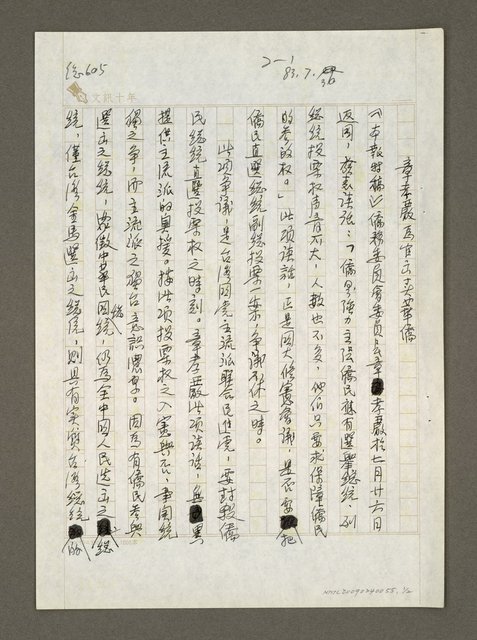 總605
2-1
83.7.30
文訊十年
章孝嚴為官山頭華僑
〈本報特稿〉僑務委員會委員長章孝嚴於七月廿六日
返國，發表談話：「僑界強力主張僑民應有選舉總統、副
總統投票權聲音不大，人數也不多，他們只要求保障僑民
的參政權。」此項談話，正是國大修憲會議，是否要把
僑民直選總統副總投票一案，爭議不休之時。
此項爭議，是台灣國民黨主流派聯合民進黨，要封殺僑
民總統直選投票權之時刻。章孝嚴此項談話，無異
提供主流派的奧援。據此項投票權之入憲與否，事關統
獨之爭，而主流派之獨台意識濃厚。因為有僑民參與
選出之總統，象徵中華民國總統，仍為全中國人民選出之總
統，僅台灣金馬選出之總統，則具有實質台灣總統的
NMTL20090240055, 1/2